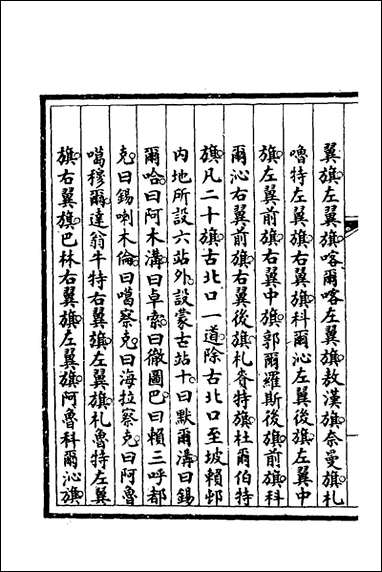 翼旗左翼旗喀爾喀左翼旗敖漢旗奈曼旗札
嚕特左翼旗右翼旗科爾沁左翼後旗左翼中
旗左翼前旗右翼中旗郭爾羅斯後旗前旗科
爾沁右翼前旗右翼後旗札賚特旗杜爾伯特
旗凡二十旗古北口一道除古北口至坡賴邨
内地所設六站外設蒙古站十曰默爾溝曰錫
爾哈曰阿木溝曰卓索曰徹圖巴曰賴三呼都
克曰錫喇木倫曰噶察克曰海拉察克曰阿魯
噶穆爾達翁牛特右翼旗左翼旗札魯特左翼
旗右翼旗巴林右翼旗左翼旗阿魯科爾沁旗